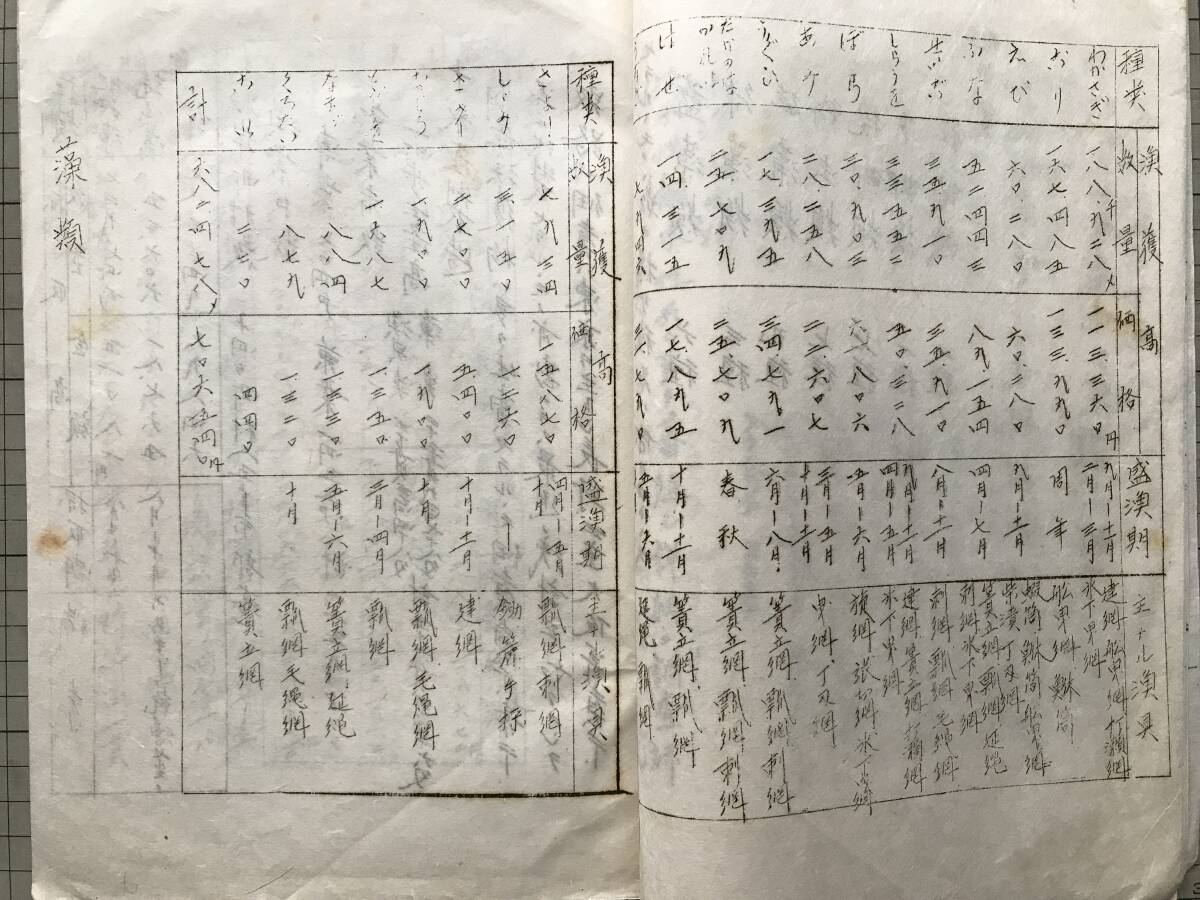 種類 漁獲高 数量 価格 盛漁期 主ナル漁具
わかさぎ 一八八、九二八 一一三、三六〇円 九月―十二月 二月―三月 建網 船曳網 打瀬網 氷下曳網
ごり 一六七、四八五 一三三、九九〇 周年 船曳網
えび 六〇、二八〇 六〇、二八〇 九月―十二月 船曳網 柴漬
ふな 五二四四三 八九、一五四 四月―七月 簀立網 瓢網 延縄 刺網 氷下曳網
せいご 三五、九一〇 三五、九一〇 八月―十一月 刺網 瓢網 毛縄網
しらうを 三三、五五二 五〇、三二八 九月―十一月 四月―五月 建網 簀立網 打瀬網 氷下曳網
ぼら 三〇、九〇三 六一、八〇六 五月―六月 旋網 張切網 氷下曳網
あみ 二八、二五八 二二、六〇七 三月―五月 十月―十二月 曳網
うぐひ 一七、三九五 三四、七九一 六月―八月 簀立網、瓢網、刺網
たかのはかれい 二五、七〇九 二五、七〇九 春秋 簀立網、瓢網、刺網
はぜ 一四、三一五 一七、八九五 十月―十一月 簀立網、瓢網
種類 漁獲高 数量 価格 盛漁期 主ナル漁具
さより 七九三四 一五八七〇 四月―五月 十月 瓢網 刺網
しゞみ 三一五〇 一二六〇 ― 鋤簾 手採
二七〇〇 五四〇〇 十月―十一月 建網
一九〇〇 一、九〇〇 十月 瓢網、毛縄網
一六八七 一、三五〇 三月―四月 瓢網
なまず 八八四 一、三三〇 五月―六月 簀立網、延縄
くろだい 八七九 一、三二〇 十月 瓢網 毛縄網
こい 二二〇 四四〇 簀立網
計 六八二四七八 七〇六五四〇円
藻類